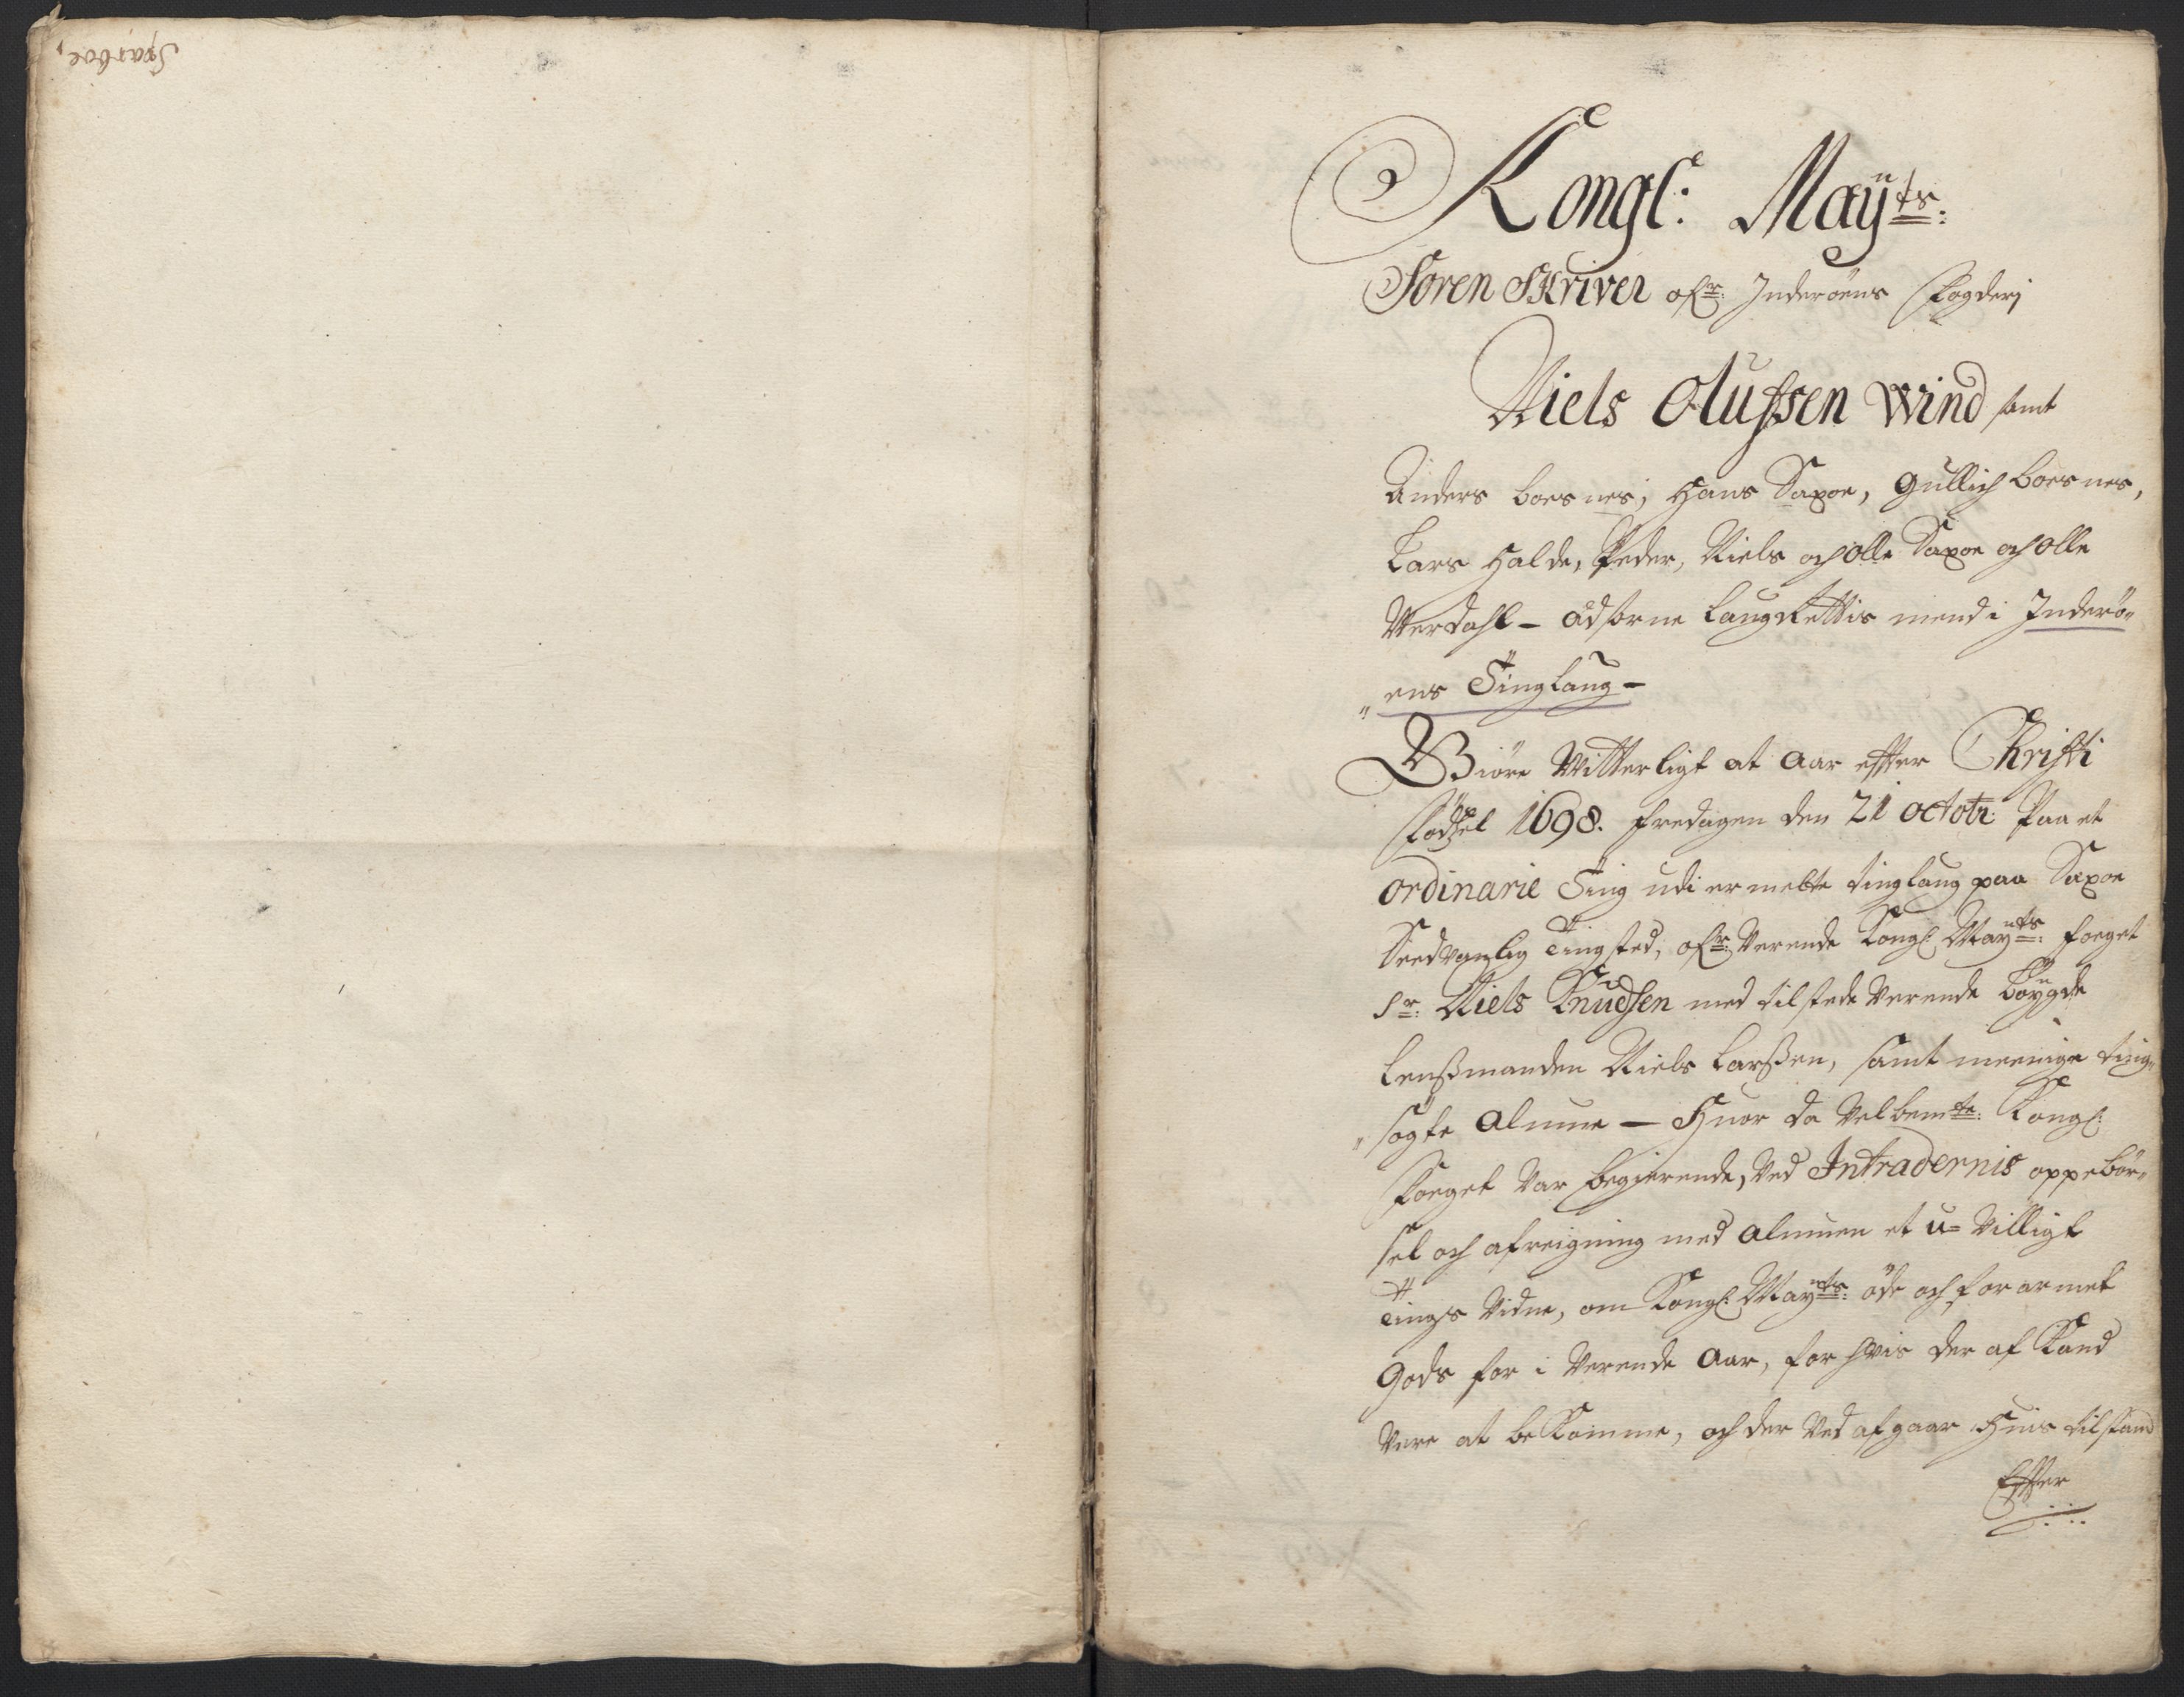 Sparboe,
Kongl: Maÿts:
Soren Skriver ofr: Inderøens fogderj
Niels Olufsen Wind samt
Anders boes nes, Hans Saxoe, Gullich boes nes,
Lars Halde, Peder, Niels och olle Saxoe och olle
Werdahl - Edsorne Laugrettis mend i Inderø„
„ens Tinglaug -
Giøre Witterligt at aar effter Christi
fødzel 1698. fredagen den 21 octobr: Paa et
ordinarie Ting udi ermelte tinglaug paa Saxoe
Sædvanlig Tingsted, ofr: Verende Kongl: Mayts: foeget
Sr: Niels Knudsen med tilstede Verende Bøygde
Lenßmanden Niels Larßen, samt meenige ting„
„søgte Almue - Huor da Velbemte: Kongl:
foeget Var begierende, Ved Intradernis oppebør„
sel och afreigning med Almuen et u- Villigt
Tings Vidne, om Kongl: Mayts: øde och forarmet
Gods for i Verende Aar, for hvis der af Kand
Vere at be Komme, och der Ved afgaar Huis tilstand
Effter